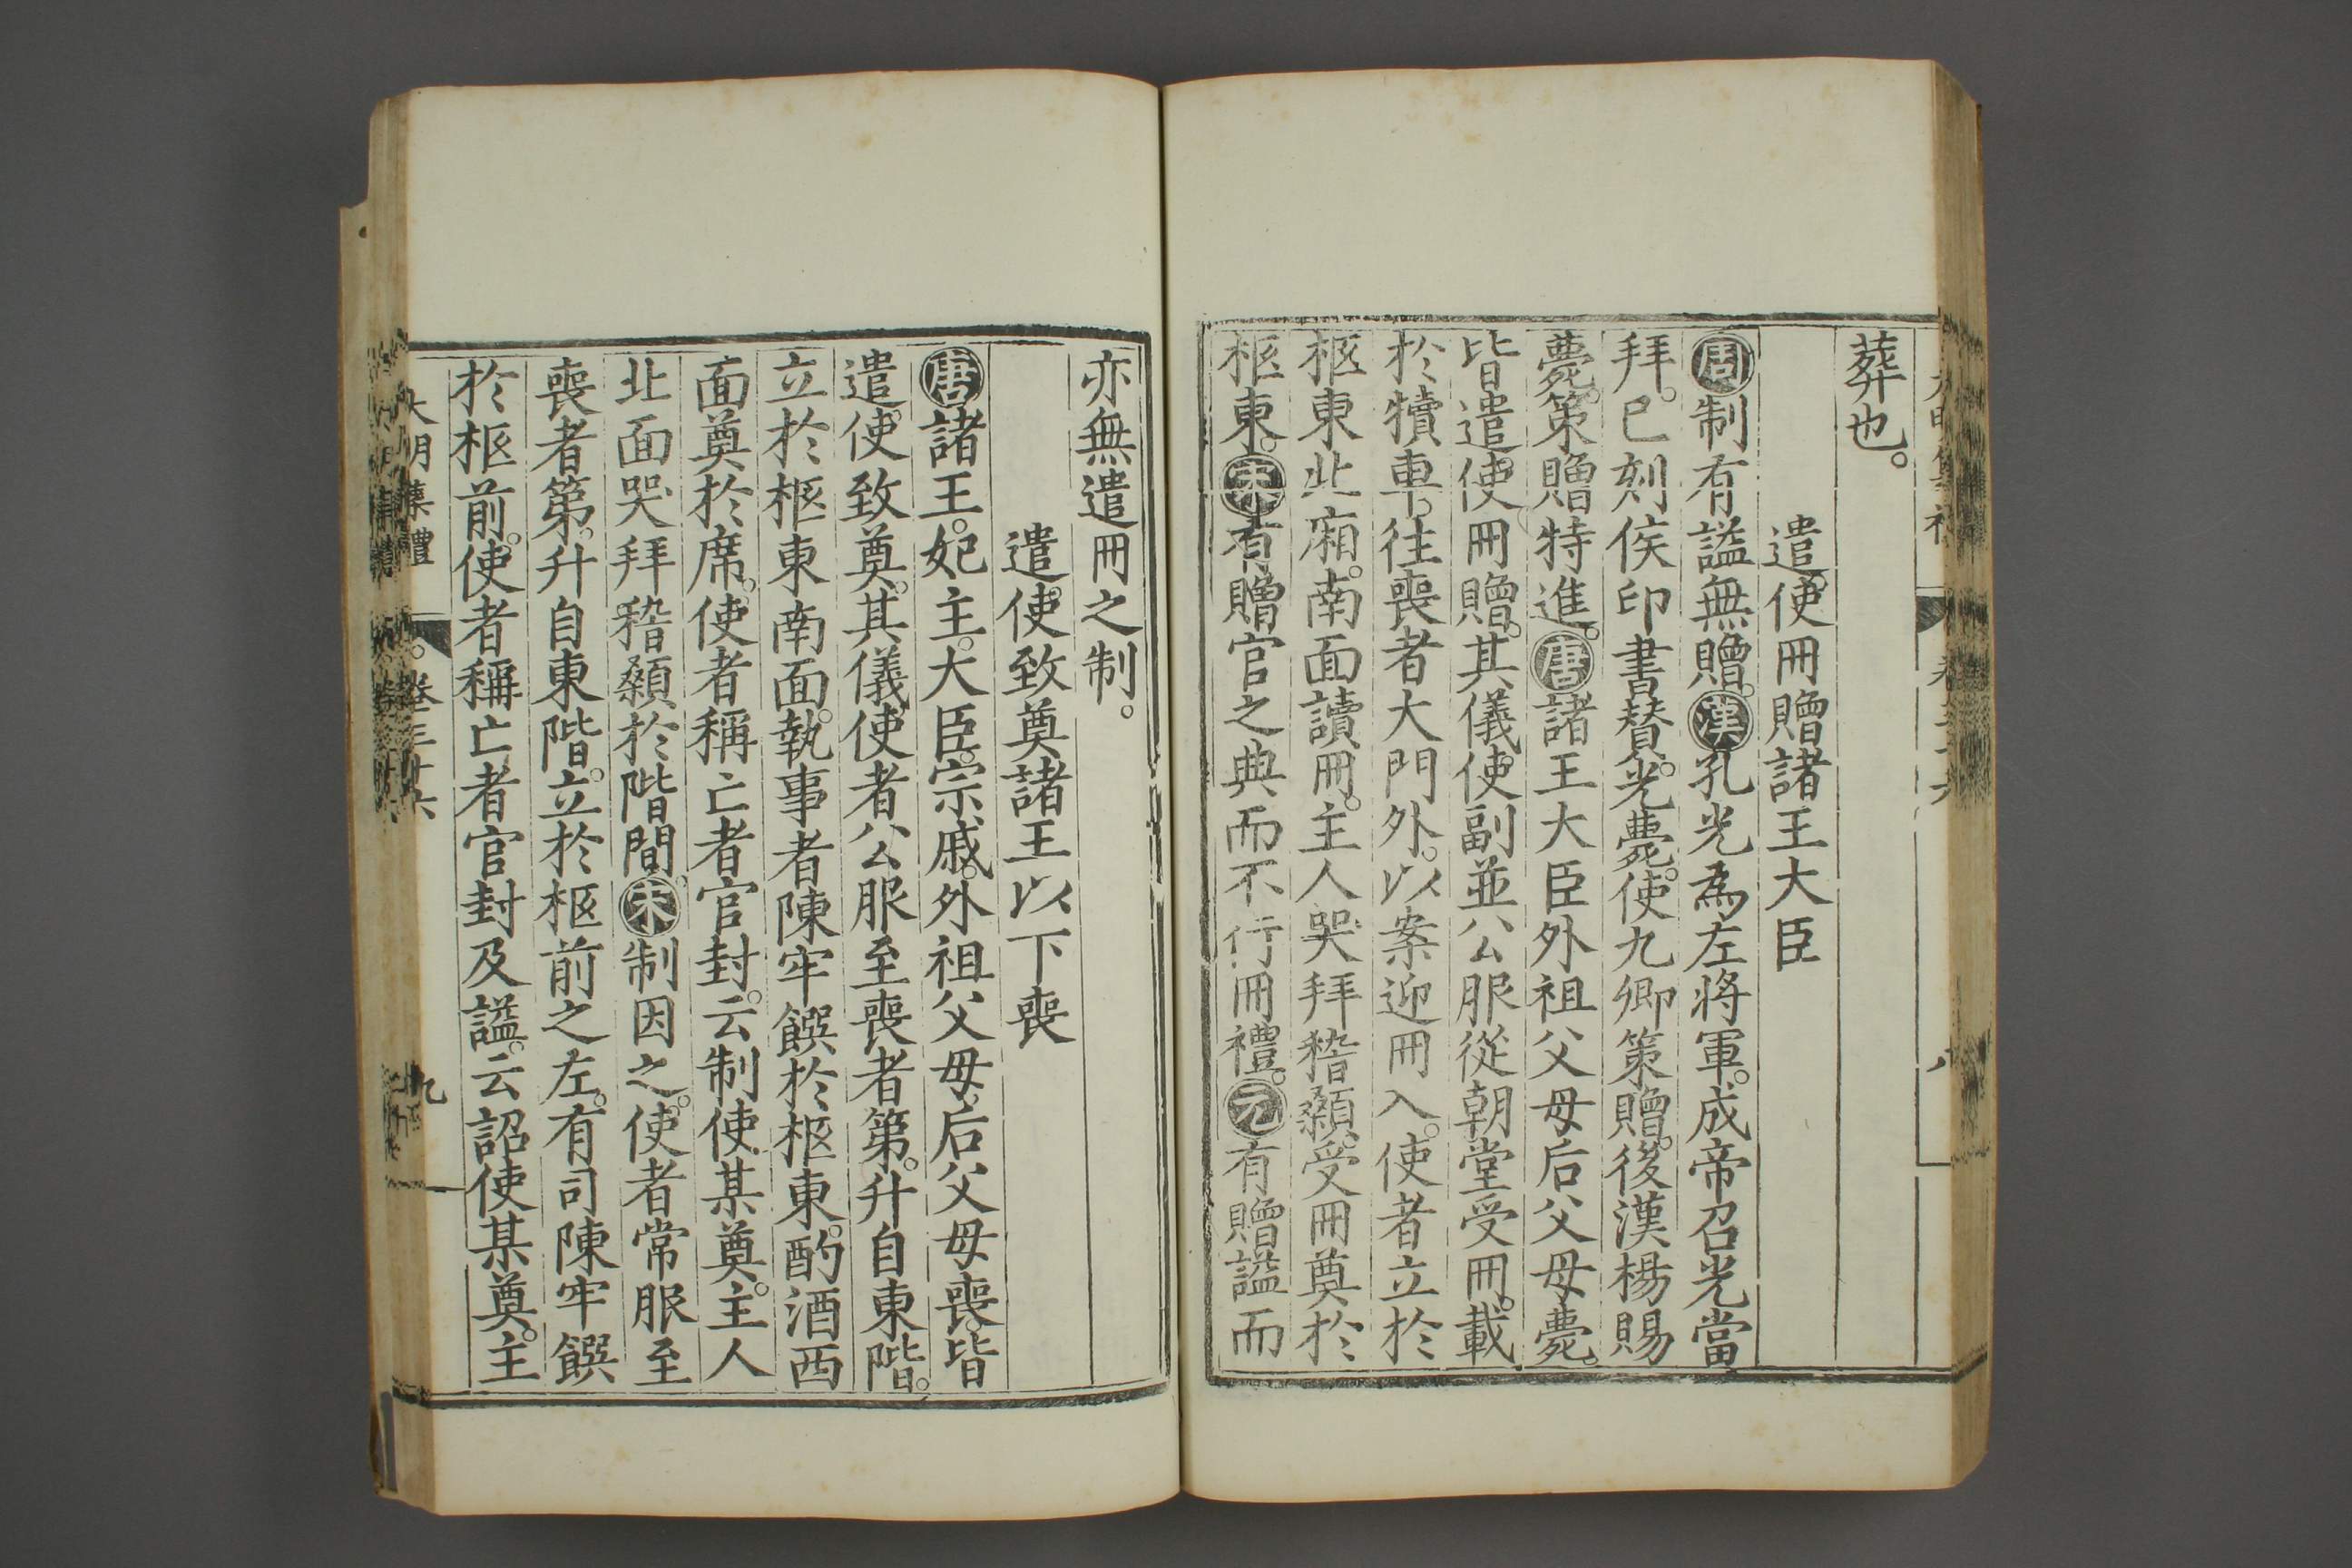 葬也。
遣使冊贈諸王大臣
周制有謚無贈。漢孔光為左將軍。成帝召光當
拜。已刻侯印書賛。光薨。使九卿策贈。後漢楊賜
薨。策贈特進。唐諸王大臣外祖父母后父母薨。
皆遣使冊贈。其儀使副並公服從朝堂受冊。載
於犢車。往喪者大門外。以案迎冊入。使者立於
柩東北廂。南面讀冊。主人哭拜稽顙。受冊奠於
柩東。宋有贈官之典而不行冊禮。元有贈謚而
亦無遣冊之制。
遣使致奠諸王以下喪
唐諸王。妃主。大臣。宗戚。外祖父母。后父母喪。皆
遣使致奠。其儀使者公服至喪者第。升自東階。
立於柩東南面。執事者陳牢饌於柩東。酌酒西
面奠於席。使者稱亡者官封。云制使某奠。主人
北面哭拜稽顙於階間。宋制因之。使者常服至
喪者第。升自東階。立於柩前之左。有司陳牢饌
於柩前。使者稱亡者官封及謚。云詔使某奠。主
大明集禮 卷三十六 九